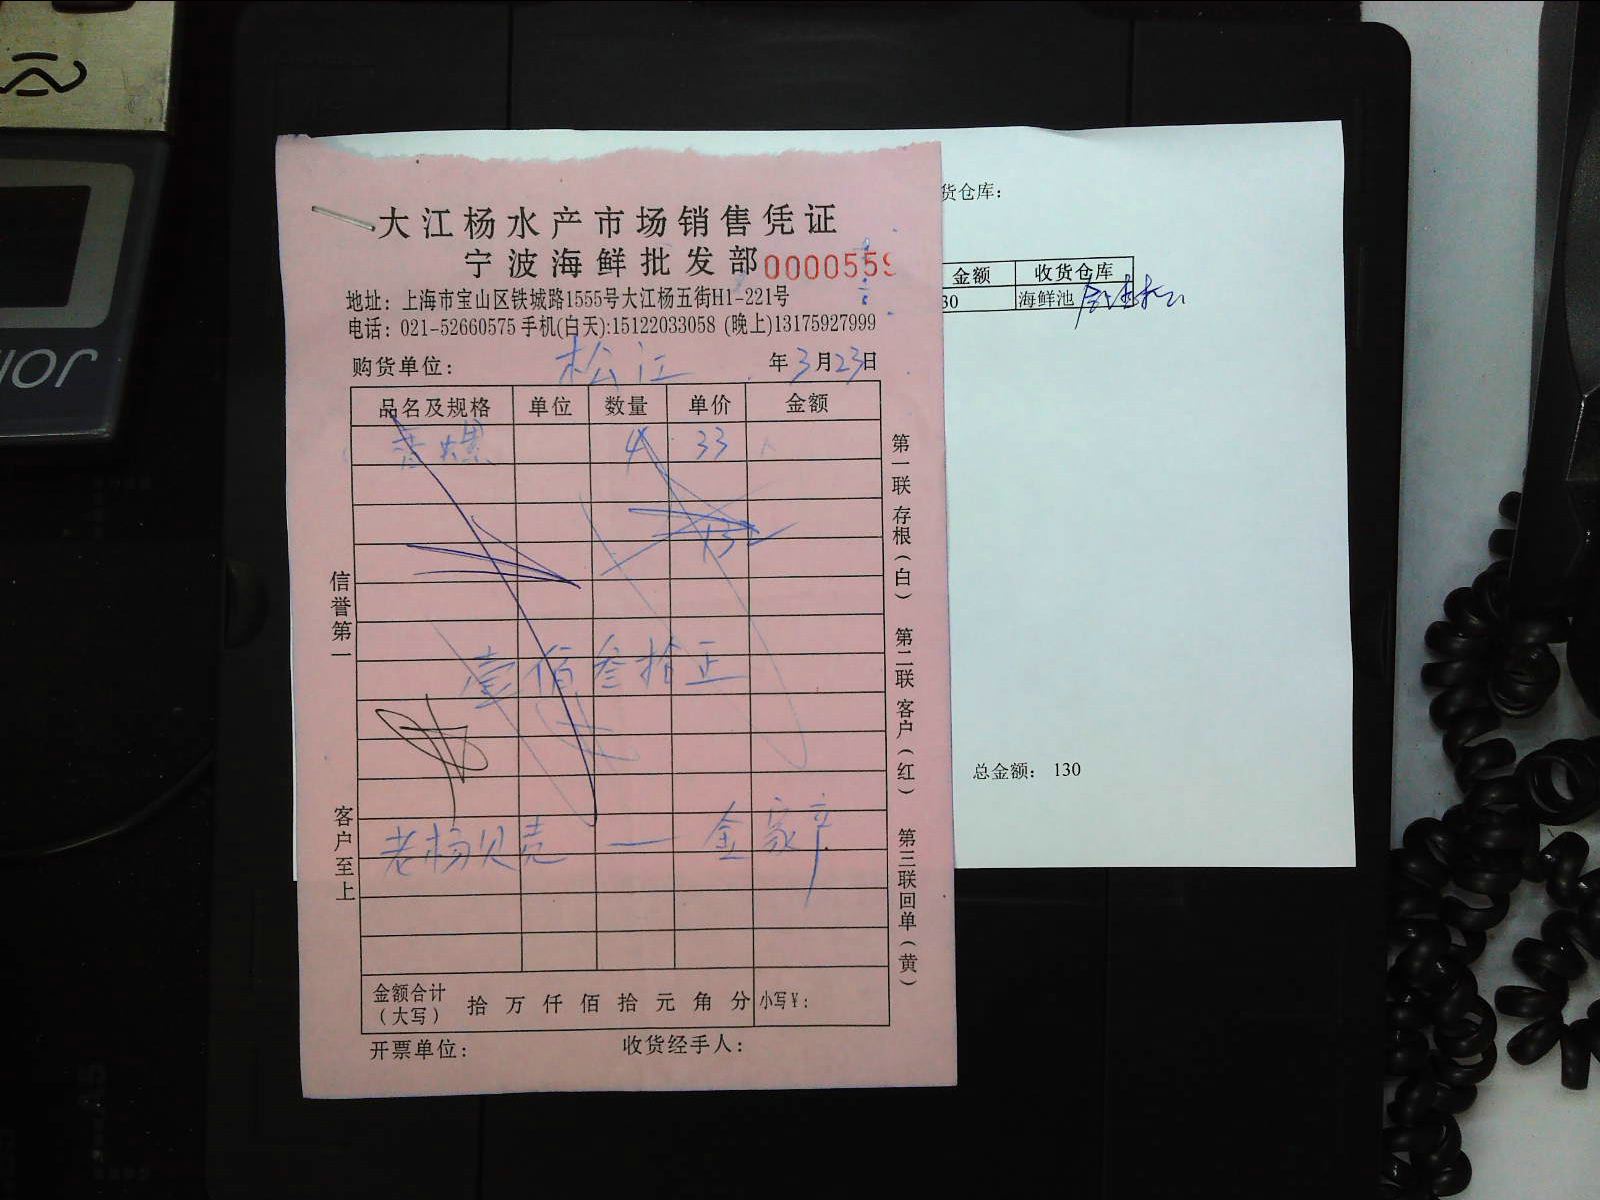 大江杨水产市场销售凭证
宁波海鲜批发部 0000559
地址：上海市宝山区铁城路1555号大江杨五街H1-221号
电话：021-52660575 手机(白天):15122033058 (晚上)13175927999
购货单位： 松江 年3月23日
品名及规格 单位 数量 单价 金额
黄螺 4 33
132
壹佰叁拾正
老杨贝壳 — 金家
金额合计（大写） 拾 万 仟 佰 拾 元 角 分 小写￥:
开票单位： 收货经手人：
信誉第一
客户至上
第一联 存根（白） 第二联 客户（红） 第三联 回单（黄）
货仓库：
金额 收货仓库
30 海鲜池
总金额： 130